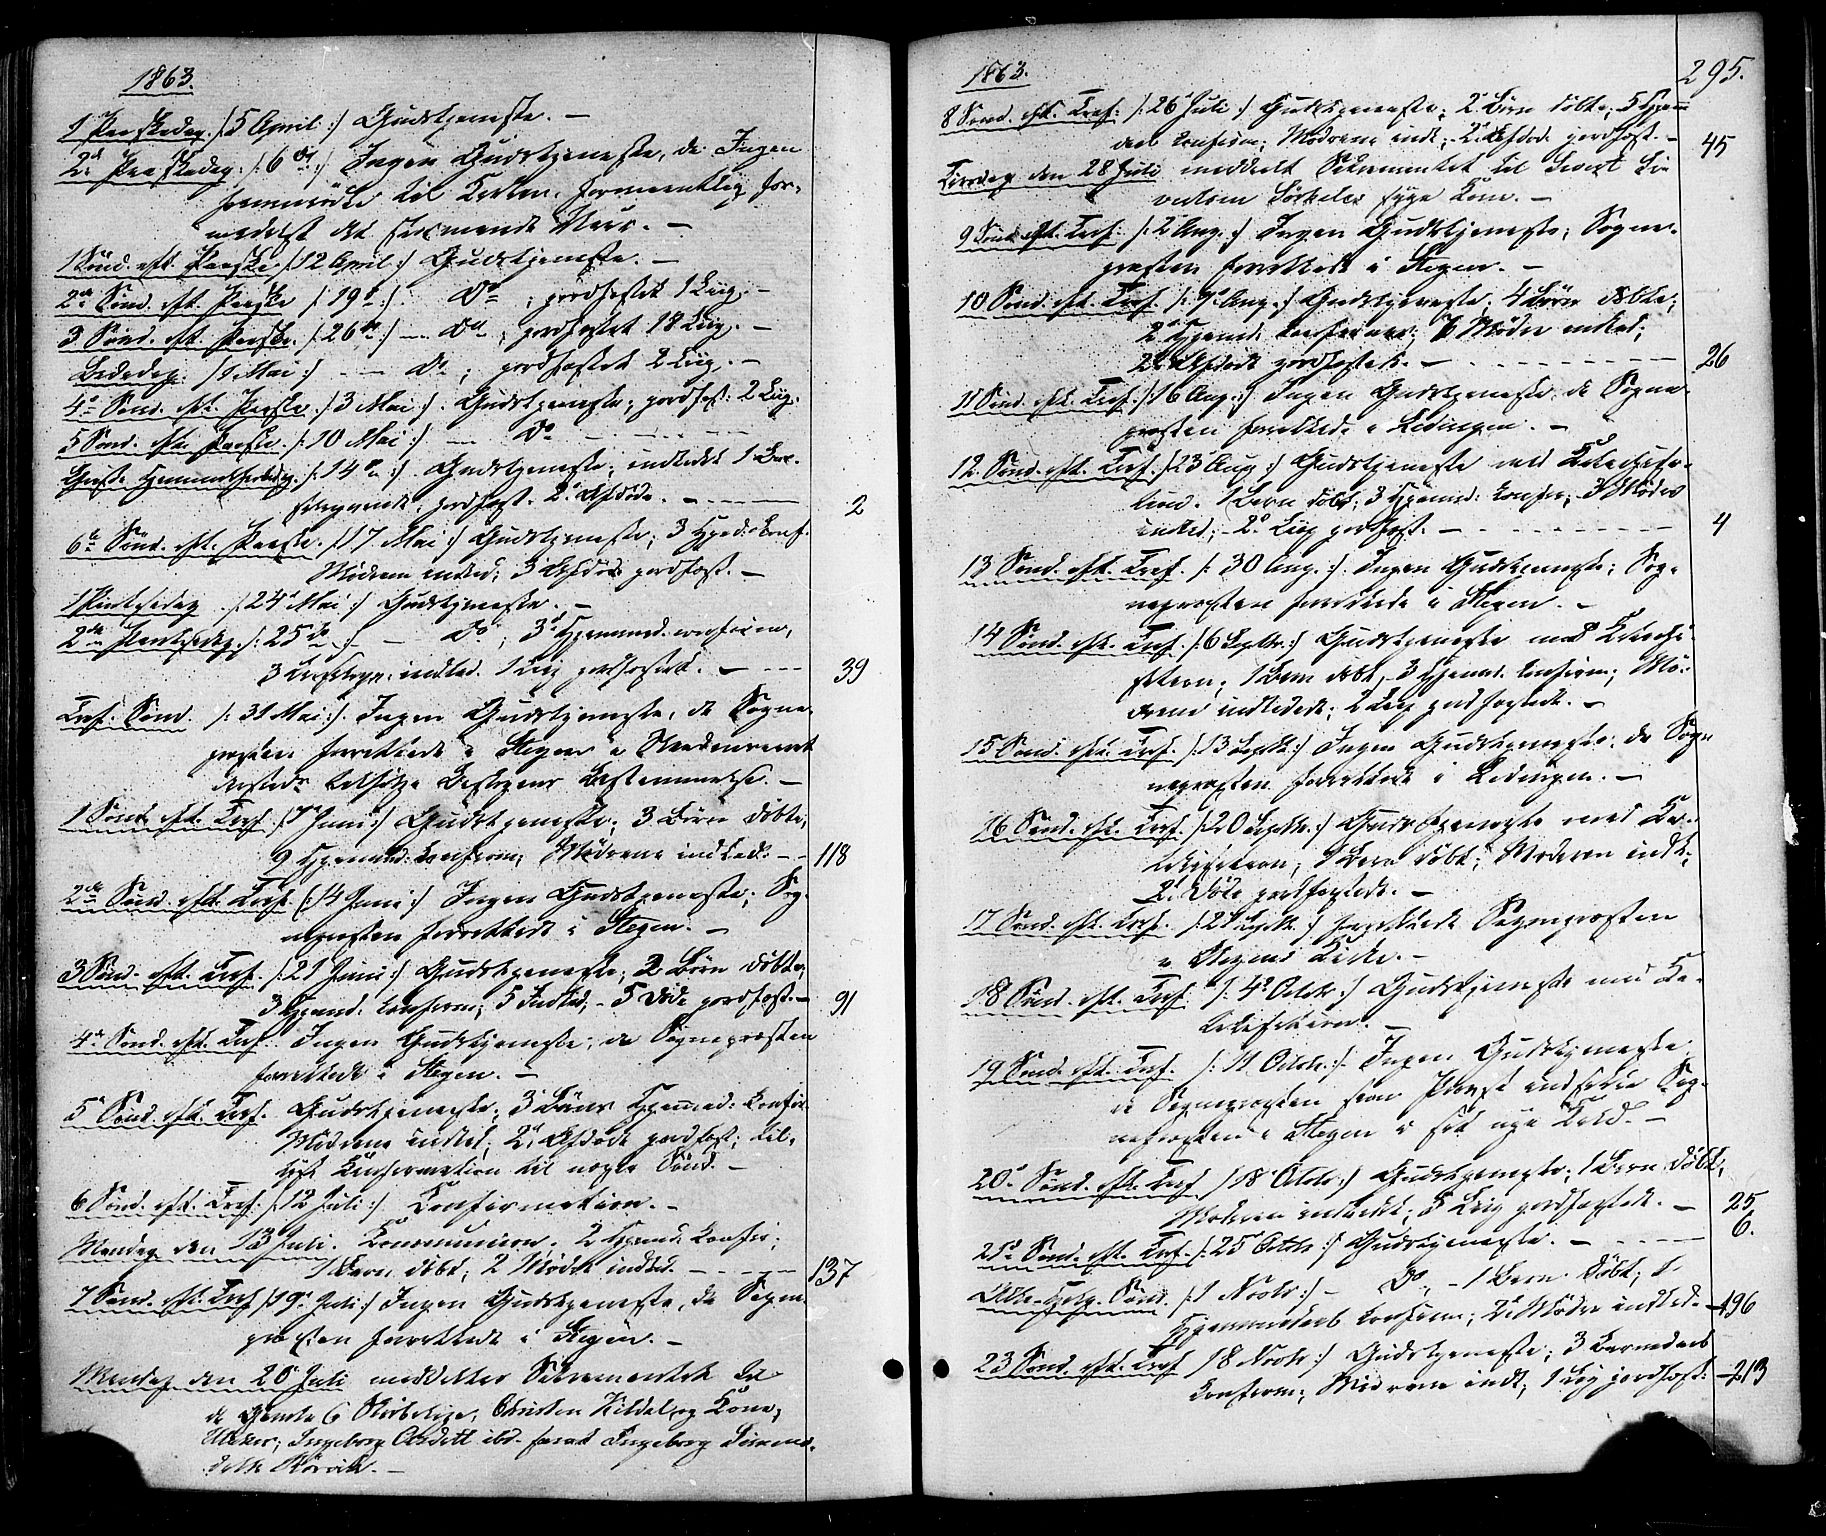 1863.
1 Paaskedag /: 5 April :/ Gudstjeneste. —
2d Paaskedag /: 6 de :/ Ingen Gudstjeneste, da Ingen
fremmødte til Kirken, formeentlig for-
medelst det
1 Sönd. eft. Paaske /: 12 April :/ Gudstjeneste. —
2de Sönd. eft. Paaske /: 19 :/ Do ; jordfæstet 1 Liig. —
3 Sönd. eft. Paaske. /: 26 de :/ — Do ; jordfæstet 18 Liig. —
Bededag. /: 1 Mai :/ — — Do ; jordfæstet 2 Liig. —
4de Sönd. eft. Paaske /: 3 Mai :/. Gudstjeneste; jordfæst. 2 Liig.
5 Sönd. efter Paaske. /: 10 Mai :/ — Do — — — —
Christi Himmelfartsdag. /: 14 :/. Gudstjeneste; indledet 1 Bar-
jordfæst. 2 Afdöde. — — — — 2
6te Sönd. eft. Paaske. /: 17 Mai :/ Gudstjeneste; 3 Hjemd. Conf.
Mödrene indled; 3 Afdöde jordfæst. —
1 Pintsedag /: 24 Mai :/ Gudstjeneste. —
2den Pintsedag. /: 25 de :/ — Do ; 3 Hjemmed. confirm,
3 indled. 1 Liig jordfæstet. — — — 39
Tref. Sönd. /: 31 Mai :/. Ingen Gudstjeneste, da Sogne-
præsten forrettede i Stegen i
Bestemmelse. —
1 Sönd. eft. Tref. /: 7 Juni :/ Gudstjeneste; 3 Börn döbte,
9 Hjemmed. Confirm; Mödrene indled. — — 118
2den Sönd. eft. Tref. /: 14 Juni :/ Ingen Gudstjeneste; Sog-
nepræsten forrettede i Stegen. —
3 Sönd. eft. Tref. /: 21 Juni :/ Gudstjeneste; 2 Börn döbte,
3 Hjemd. Confirm; 5 Indled, — 5 Döde jordfæst. — 91
4de Sönd. eft. Tref. Ingen Gudstjeneste, da Sognepræsten
forrettede i Stegen. —
5 Sönd. eft. Tref. Gudstjeneste; 3 Börns Hjemmed: Confir.
Mödrene indled; 2 Afdöde jordfæst; til-
lyst Confirmation til næste Sönd. —
6 Sönd. eft. Tref. /: 12 Juli :/ Confirmation. —
Mandag den 13 Juli. Communion. 2 Hjemd: Confir;
1 Barn döbt; 2 Mödre indled. — — — — 137
7 Sönd. eft. Tref. /: 19 Juli :/ Ingen Gudstjeneste, da Sogne-
præsten forrettede i Stegen. —
Mandag den 20 Juli meddeltes Sakramentet til
de Gamle Christen Kildal og Kone,
Ingeborg Ingeborg
—
1863. 295.
8 Sönd. eft. Tref: /: 26 Juli :/ Gudstjeneste; 2 Börn döbte; 5 Hjem-
deel Confirm; Mödrene indl; 2 Afdöd. jordfæst. — 45
Tirsdag den 28 Juli meddeelt Sakramentet til
syge Kone. —
9 Sönd. eft. Tref: /: 2 Aug. :/ Ingen Gudstjeneste; Sogne-
præsten forrettede i Stegen. —
10 Sönd. eft. Tref. /: 9 Aug. :/ Gudstjeneste. 4 Börn döbte;
2 Hjemmd. Confirmeret; Mödre indled;
2 Afdöde jordfæstede. — — — — — 26
11 Sönd. eft. Tref. /: 16 Aug. :/ Ingen Gudstjeneste da Sogne-
præsten forrettede i Lödingen. —
12 Sönd. eft. Tref. /: 23 Aug :/ Gudstjeneste med Catechisa-
tion. 1 Barn döbt; 3 Hjemmed: Confir; 3 Mödre
indled; — 2 Liig jordfæst. — — — — — 4
13 Sönd. eft. Tref. /: 30 Aug. :/. Ingen Gudstjeneste; Sog-
nepræsten forrettede i Stegen. —
14 Sönd. eft. Tref. /: 6 Septbr. :/ Gudstjeneste med Catechi-
sation; 1 Barn döbt, 3 Hjemd. Confirm; Mö-
drene indledede; 2 Liig jordfæstede. —
15 Sönd. eft. Tref. /: 13 Septbr :/ Ingen Gudstjeneste, da Sog-
nepræsten forrettede i Lödingen. —
16 Sönd. eft. Tref. /: 20 Septbr. :/ Gudstjeneste med Ca-
techisation; 1 Barn döbt; Moderen indl;
2 Döde jordfæstede. —
17 Sönd. eft. Tref. /: 27 Septbr. :/ forrettede Sognepræsten
i Stegens Kirke. —
18 Sönd. eft. Tref. /: 4 Octbr. :/ Gudstjeneste med Ca-
techisation. —
19 Sönd. eft. Tref. /: 11 Octbr. :/. Ingen Gudstjeneste
da Sognepræsten som Provst indsatte Sog-
nepræsten i Stegen i sit nye Kald. —
20de Sönd. eft. Tref. /: 18 Octbr :/ Gudstjeneste; 1 Barn döbt;
Moderen indledet; 3 Liig jordfæstede. — 25
21de Sönd. eft. Tref. /: 25 Octbr :/ Gudstjeneste. — — — — 6.
Alle-Helg. Sönd. /: 1 Novbr :/ — Do — 1 Barn döbt; 1
Hjemmedøbt confirm; 2 Mödre indled. — 196
23 Sönd. eft. Tref. /: 8 Novbr. :/ Gudstjeneste; 3 Barnedaab
Confirm; Mödrene indl; 1 Liig jordfæst: — 213